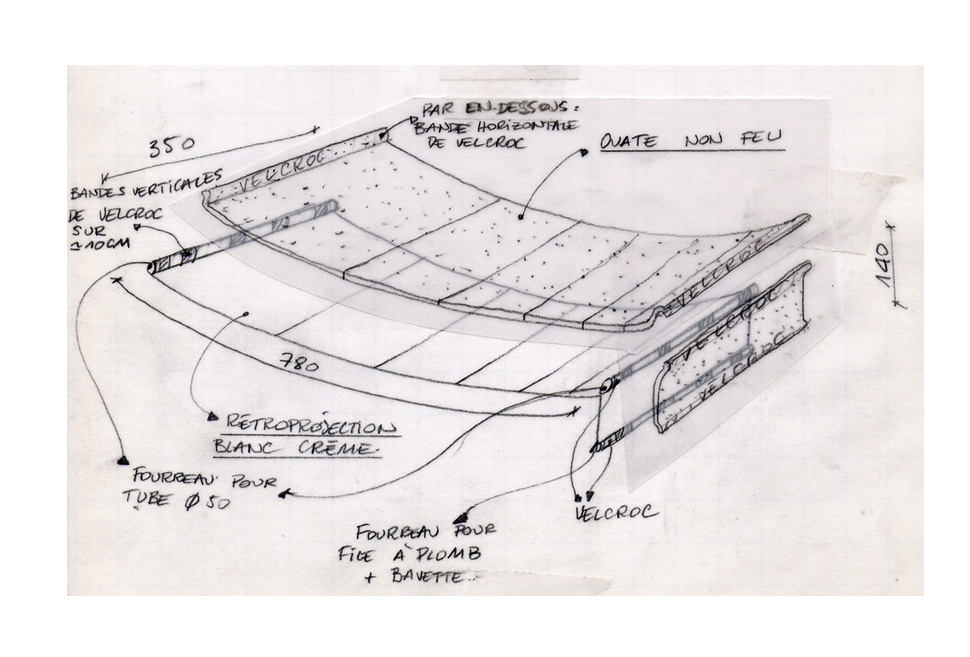 PAR EN-DESSOUS :
BANDE HORIZONTALE
DE VELCROC
350
OUATE NON FEU
VELCROC
BANDES VERTICALES
DE VELCROC
SUR
± 10CM
140
VELCROC
VELCROC
VELCROC
780
RETROPROJECTION
BLANC CRÈME.
FOURREAU POUR
TUBE Ø 50
VELCROC
FOURREAU POUR
FILE À PLOMB
+ BAVETTE.